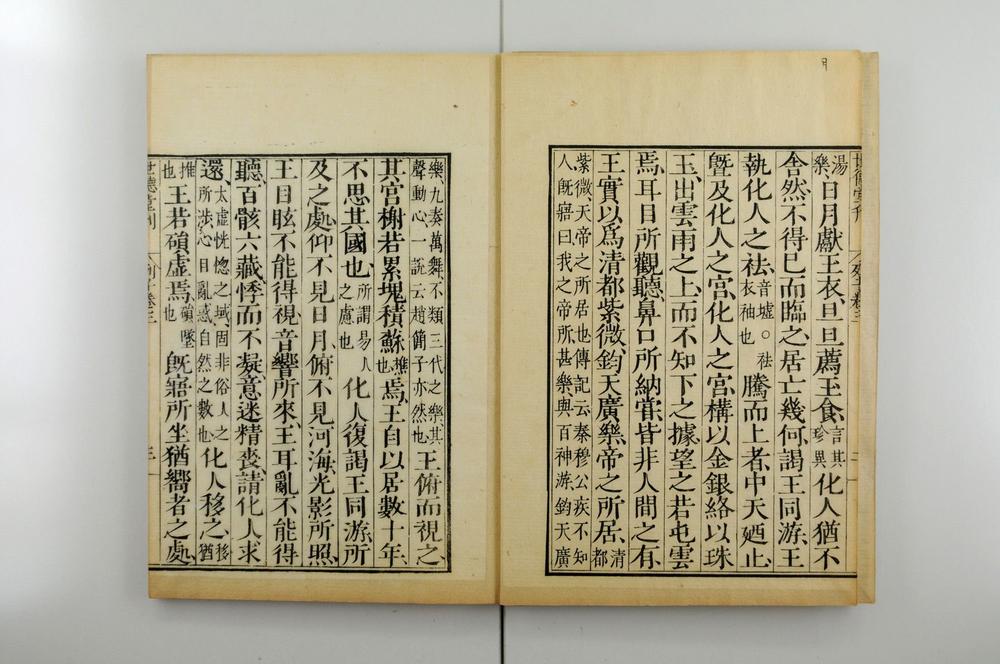 世德堂刊 列子卷三 二
湯樂日月獻王衣、旦旦薦王食、言其珍異化人猶不
舍然、不得已而臨之、居亡幾何、謁王同游、王
執化人之袪、音墟○袪衣袖也騰而上者、中天廼止、
曁及化人之宮、化人之宮、構以金銀、絡以珠
玉、出雲雨之上、而不知下之據、望之若屯雲
焉、耳目所觀聽、鼻口所納甞、皆非人間之有、
王實以爲清都紫微、鈞天廣樂、帝之所居、清都
紫微、天帝之所居也傳記云秦穆公疾不知
人旣寤曰我之帝所甚樂與百神游鈞天廣
樂九奏萬舞不類三代之樂其聲動心一說云趙簡子亦然也王俯而視之、
其宮榭若累塊積蘇樵也焉、王自以居數十年、
不思其國也、所謂易人之慮也化人復謁王同游、所
及之處、仰不見日月、俯不見河海、光影所照、
王目眩不能得視、音響所來、王耳亂不能得
聽、百骸六藏、悸而不凝、意迷精喪、請化人求
還、太虛恍惚之域固非俗人之所涉心目亂惑自然之數也化人移之、移猶
推也王若磒虛焉、磒墜也旣寤、所坐猶嚮者之處、
世德堂刊 列子卷三 三